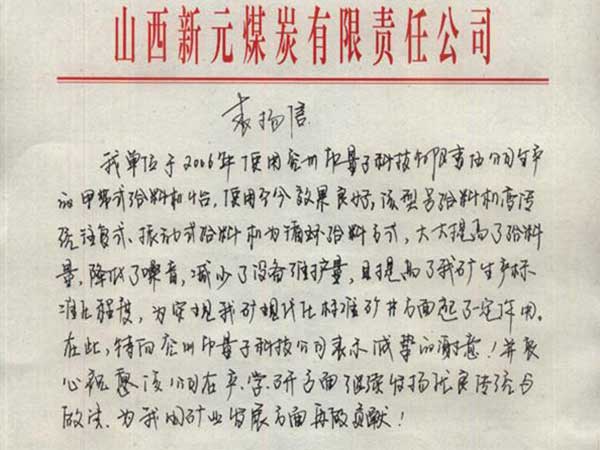 山西新元煤炭有限责任公司
表扬信
我单位于2006年使用兖州市量子科技有限责任公司生产
的甲带式给料机4台,使用至今效果良好,该型号给料机变传
统往复式、振动式给料机为循环给料方式,大大提高了给料
量,降低了噪音,减少了设备维护量,且提高了我矿生产标
准化强度,为实现我矿现代化标准矿井方面起了一定作用。
在此,特向兖州市量子科技公司表示诚挚的谢意!并衷
心祝愿该公司在产、学、研方面继续发扬优良传统与
做法,为我国矿业发展方面再做贡献!